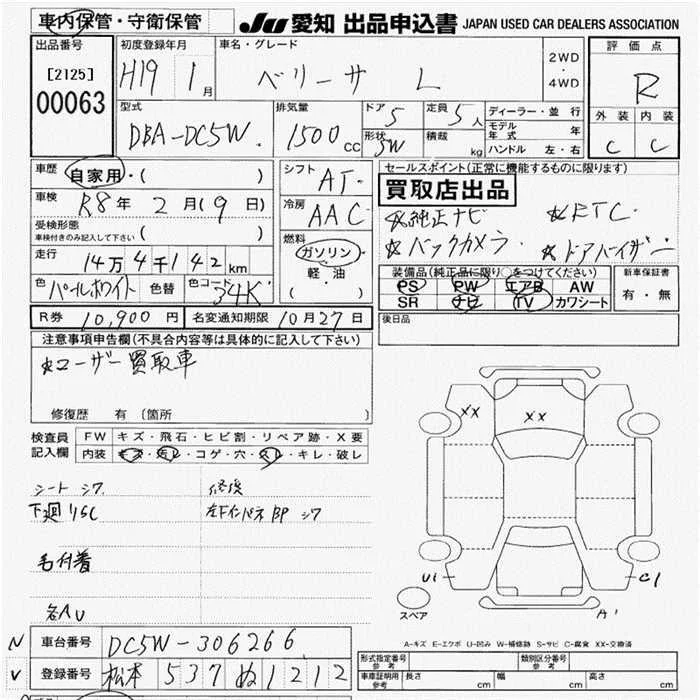 車内保管・守衛保管
JU 愛知 出品申込書 JAPAN USED CAR DEALERS ASSOCIATION
出品番号
[2125]
00063
初度登録年月
H19 1月
車名・グレード
ベリーサ L
2WD
・
4WD
評価点
R
外装 内装
C C
型式
DBA-DC5W
排気量
1500 CC
ドア 5
定員 5人
形状 5W
積載 kg
ディーラー・並行
モデル年式 年
ハンドル 左・右
車歴
自家用・( )
車検 R8年 2月(9日)
受検形態
車検付きのみ記入して下さい ( )
走行 14万4千142km
色 パールホワイト 色替 色コード 34K
シフト AT
冷房 AAC
燃料
ガソリン
軽・油
( )
セールスポイント(正常に機能するものに限ります)
買取店出品
☆純正ナビ ☆ETC
☆バックカメラ ☆ドアバイザー
装備品(純正品に限り○をつけてください)
PS PW エアB AW
SR ナビ TV カワシート
新車保証書
有・無
R券 10,900円 名変通知期限 10月27日
後日品
注意事項申告欄(不具合内容等は具体的に記入して下さい)
☆ユーザー買取車
修復歴 有 〔箇所 〕
検査員
記入欄
FW キズ・飛石・ヒビ割・リペア跡・X要
内装 キズ・汚レ・コゲ・穴・スレ・キレ・破レ
シート シワ
下廻リSC
毛付着
各AU
修復
左FインパネBP シワ
XX
XX
U1
C1
A1
スペア
A-キズ E-エクボ U-凹み W-補修跡 S-サビ C-腐食 XX-交換済
N 車台番号 DC5W-306266
V 登録番号 松本 537 ぬ 1212
形式指定番号
参考
類別区分番号
参考
車庫証明用
参考
長さ cm 幅 cm 高さ cm